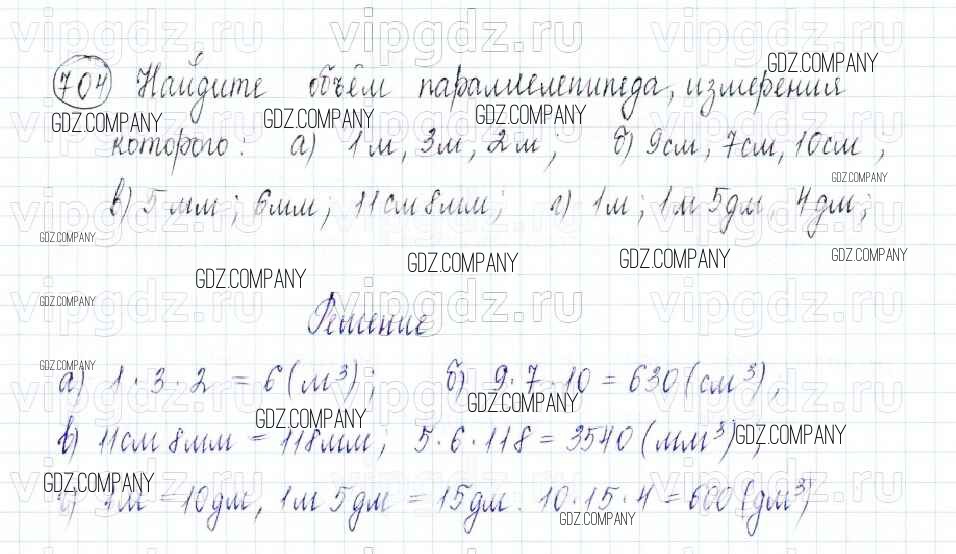 vipgdz.ru vipgdz.ru vipgdz.ru
704 Найдите объём параллелепипеда, измерения
GDZ.COMPANY
GDZ.COMPANY GDZ.COMPANY GDZ.COMPANY
которого: а) 1м, 3м, 2м; б) 9см, 7см, 10см;
vipgdz.ru vipgdz.ru vipgdz.ru
GDZ.COMPANY
в) 5 мм; 6мм; 11см 8мм; г) 1м; 1м 5дм, 4дм;
vipgdz.ru vipgdz.ru vipgdz.ru
GDZ.COMPANY GDZ.COMPANY GDZ.COMPANY GDZ.COMPANY
GDZ.COMPANY
GDZ.COMPANY
vipgdz.ru vipgdz.ru vipgdz.ru
Решение
GDZ.COMPANY
а) 1·3·2 = 6(м³); б) 9·7·10 = 630(см³),
vipgdz.ru vipgdz.ru vipgdz.ru
GDZ.COMPANY GDZ.COMPANY
в) 11см 8мм = 118мм; 5·6·118 = 3540(мм³);
GDZ.COMPANY
GDZ.COMPANY
vipgdz.ru vipgdz.ru vipgdz.ru
г) 1м = 10дм, 1м 5дм = 15дм. 10·15·4 = 600(дм³)
GDZ.COMPANY